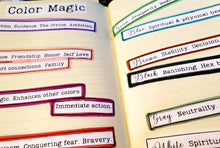 Color Magic
Guidance The Divine Ambition
Friendship Honor Self Love
connections. Family
Enhances other colors.
Immediate action
Conquering fear. Bravery
Prosperity
Blue Spiritual & physical
Brown Stability. Decision
Black Banishing. Hex
Gray Neutrality
White Spiritual